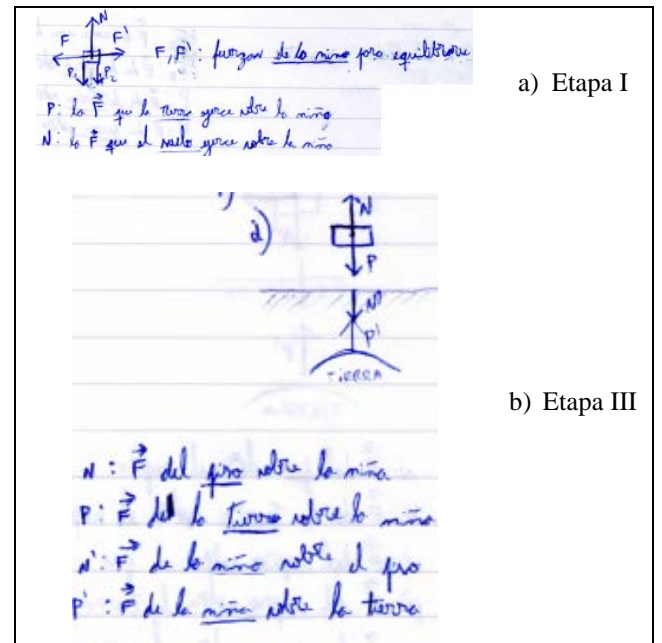 N
F F'
P₁ P₂
F, F' : fuerzas de la niña para equilibrarse
P: la F⃗ que la tierra ejerce sobre la niña
N: la F⃗ que el suelo ejerce sobre la niña
a) Etapa I
d)
N
P
N'
P'
TIERRA
b) Etapa III
N : F⃗ del piso sobre la niña
P : F⃗ de la tierra sobre la niña
N' : F⃗ de la niña sobre el piso
P' : F⃗ de la niña sobre la tierra